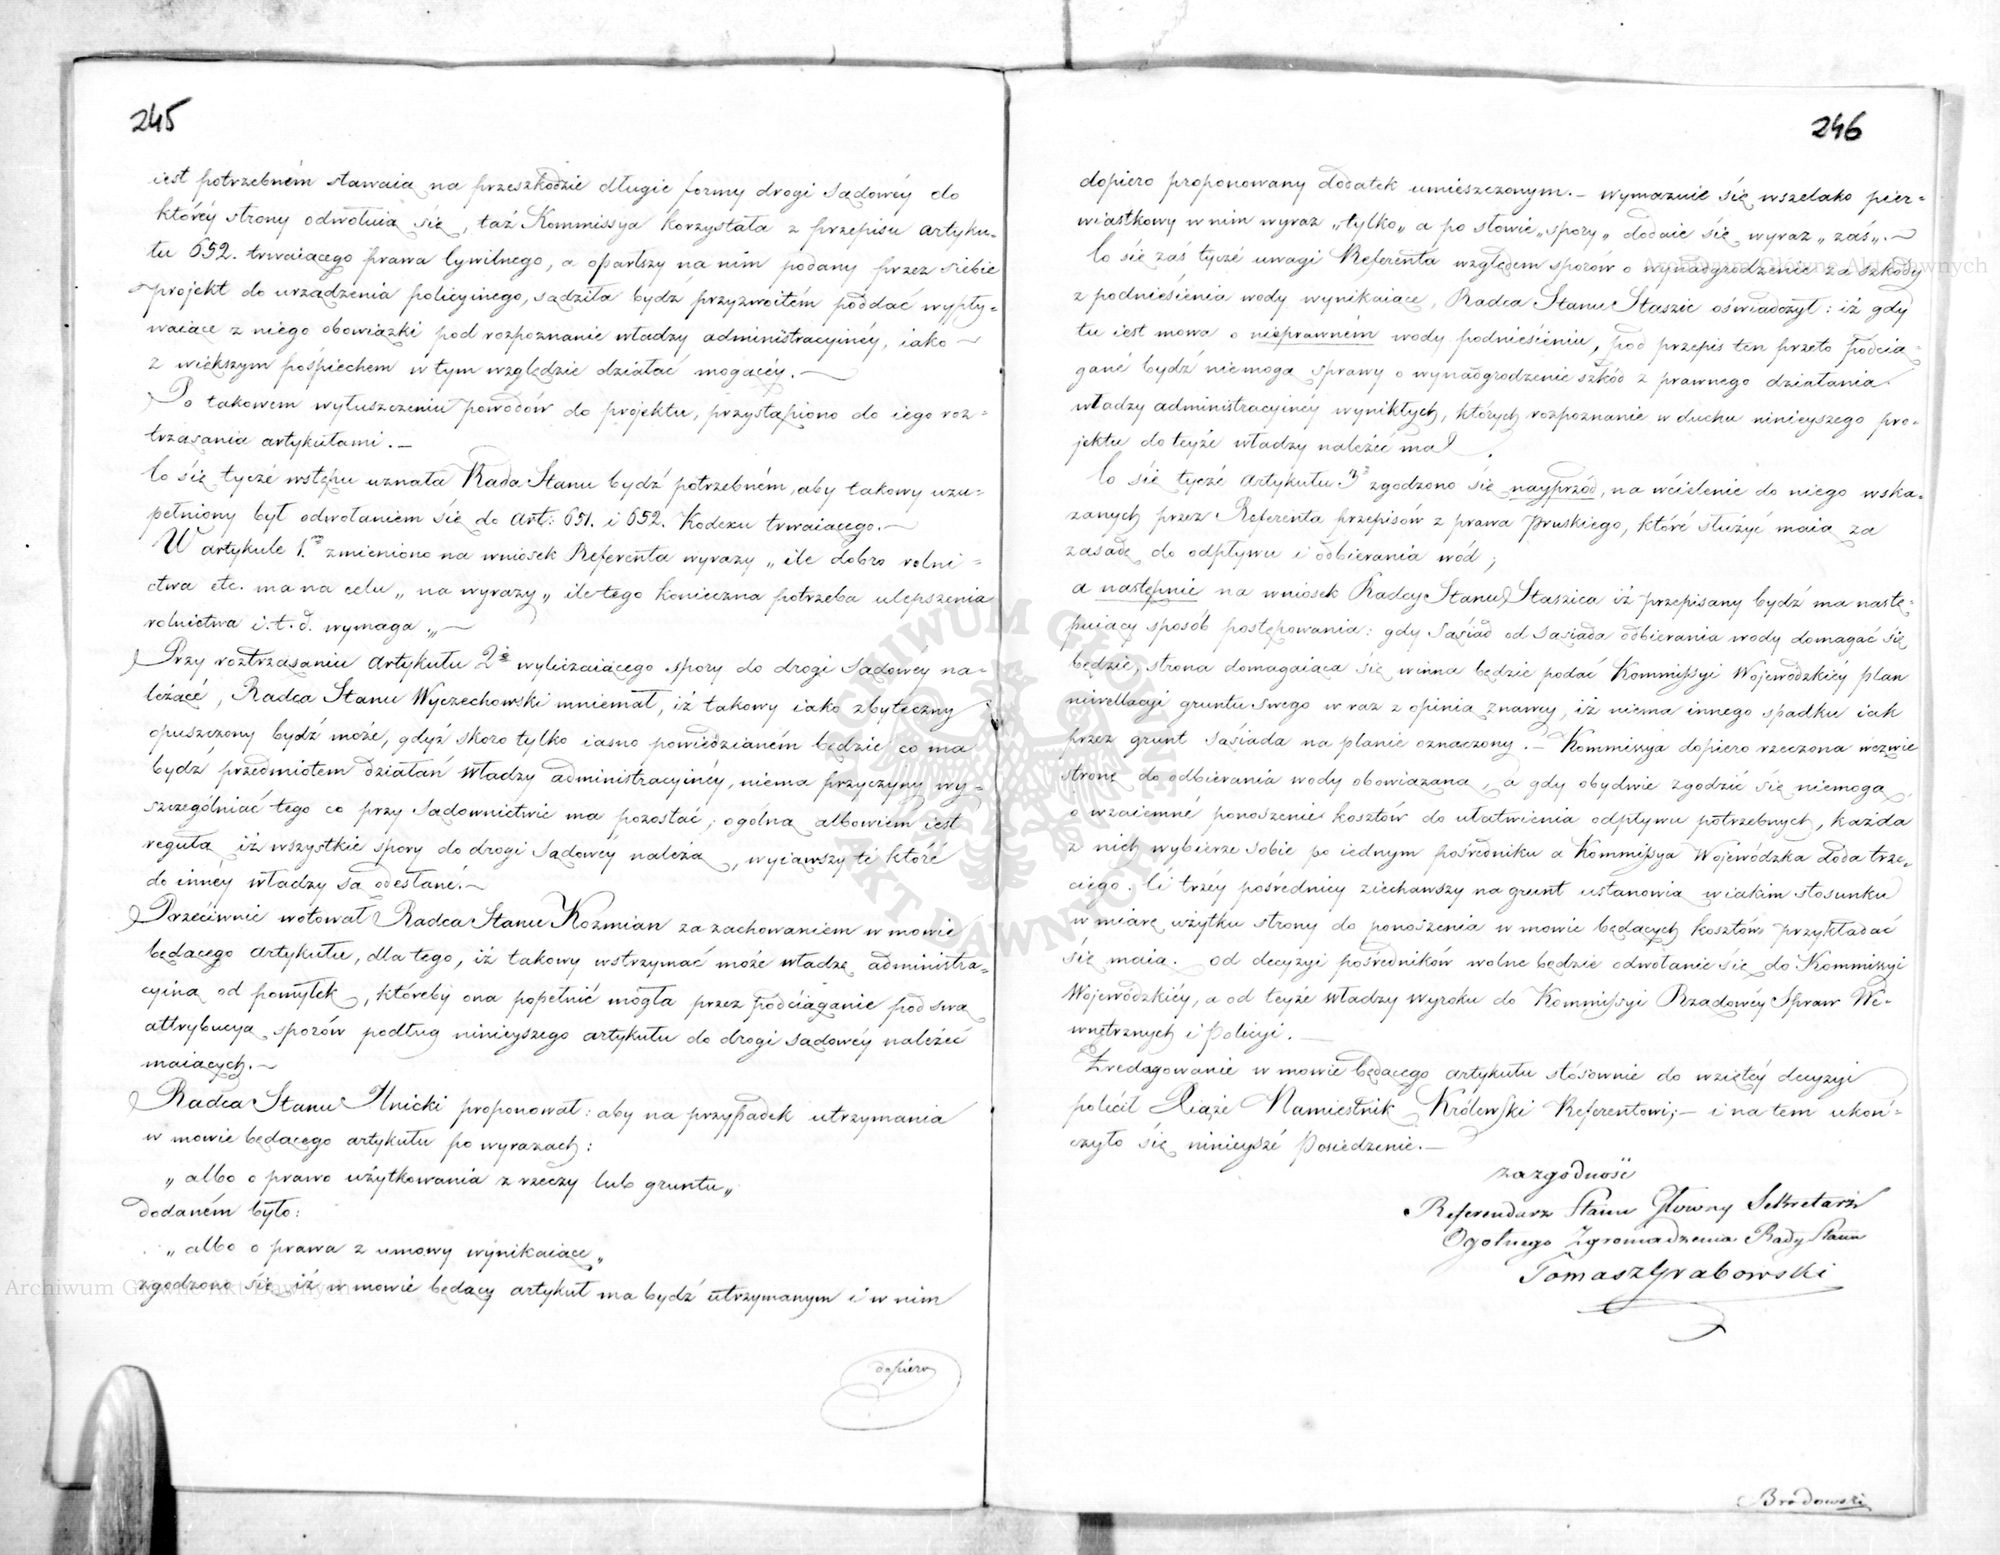 245
iest potrzebném stawaią na przeszkodzie długie formy drogi sądowéy do
któréy strony odwołuią się, taż Kommissya korzystała z przepisu artyku-
łu 652. trwaiącego prawa Cywilnego, a oparłszy na nim podany przez siebie
projekt do urządzenia policyinego, sądziła bydź przyzwoitém poddać wypły-
waiące z niego obowiązki pod rozpoznanie władzy administracyinéy, iako
z większym pośpiechem w tym względzie działać mogącéy.
Po takowem wyłuszczeniu powodów do projektu, przystąpiono do iego roz-
trząsania artykułami.
Co się tycze wstępu uznała Rada Stanu bydź potrzebném, aby takowy uzu-
pełniony był odwołaniem się do Art: 651. i 652. Kodexu trwaiącego.
W artykule 1.m zmieniono na wniosek Referenta wyrazy „ile dobro rolni-
ctwa etc. ma na celu„ na wyrazy„ ile tego konieczna potrzeba ulepszenia
rolnictwa i.t.d. wymaga„
Przy roztrząsaniu artykułu 2go wyliczaiącego spory do drogi Sądowey na-
leżące, Radca Stanu Wyczechowski mniemał, iż takowy iako zbyteczny
opuszczony bydź może, gdyż skoro tylko iasno powiedzianém będzie co ma
bydź przedmiotem działań władzy administracyinéy, niema przyczyny wy-
szczególniać tego co przy Sądownictwie ma pozostać; ogólna albowiem iest
reguła iż wszystkie spory do drogi Sądowey należą, wyiąwszy te które
do innéy władzy są odesłane.
Przeciwnie wotował Radca Stanu Koźmian za zachowaniem w mowie
będącego artykułu, dla tego, iż takowy wstrzymać może władzę administra-
cyiną od pomyłek, któreby ona popełnić mogła przez podciąganie pod swą
attrybucyą sporów podług ninieyszego artykułu do drogi sądowey należeć
maiących.
Radca Stanu Linicki proponował: aby na przypadek utrzymania
w mowie będącego artykułu po wyrazach:
„albo o prawo użytkowania z rzeczy lub gruntu„
dodaném było:
„albo o prawa z umowy wynikaiące„
zgodzono się, iż w mowie będący artykuł ma bydź utrzymanym i w nim
dopiero
246
dopiero proponowany dodatek umieszczonym. – wymazuie się wszelako pier-
wiastkowy w nim wyraz „tylko„ a po słowie „spory„ dodaie się wyraz „zaś„.
Co się zaś tycze uwagi Referenta względem sporów o wynadgrodzenie za szkody
z podniesienia wody wynikaiące, Radca Stanu Staszic oświadczył: iż gdy
tu iest mowa o nieprawném wody podniesieniu, pod przepis ten przeto podcią-
gane bydź niemogą sprawy o wynadgrodzenie szkód z prawnego działania
władzy administracyinéy wynikłych, których rozpoznanie w duchu ninieyszego pro-
jektu do teyże władzy należeć ma.
Co się tycze artykułu 3o zgodzono się nayprzód, na wcielenie do niego wska-
zanych przez Referenta przepisów z prawa pruskiego, które służyć maią za
zasadę do odpływu i odbierania wód;
a następnie na wniosek Radcy Stanu Staszica iż przepisany bydź ma nastę-
puiący sposób postępowania: gdy sąsiad od sąsiada odbierania wody domagać się
będzie, strona domagaiąca się winna będzie podać Kommissyi Wojewódzkiéy plan
niwellacyi gruntu swego wraz z opinią znawcy, iż niema innego spadku iak
przez grunt sąsiada na planie oznaczony. – Kommissya dopiero rzeczona wezwie
stronę do odbierania wody obowiązaną, a gdy obydwie zgodzić się niemogą
o wzaiemne ponoszenie kosztów do ułatwienia odpływu potrzebnych, każda
z nich wybierze sobie po iednym pośredniku a Kommissya Wojewódzka doda trze-
ciego. Ci trzéy pośrednicy ziechawszy na grunt ustanowią w iakim stosunku
w miarę użytku strony do ponoszenia w mowie będących kosztów przykładać
się maią. od decyzyi pośredników wolne będzie odwołanie się do Kommissyi
Wojewódzkiéy, a od teyże władzy wyroku do Kommissyi Rządowéy Spraw We-
wnętrznych i Policyi.
Zredagowanie w mowie będącego artykułu stósownie do wziętéy decyzyi
polecił Xiąże Namiestnik Królewski Referentowi; – i na tem ukoń-
czyło się ninieysze Posiedzenie. –
za zgodność
Referendarz Stanu Główny Sekretarz
Ogólnego Zgromadzenia Rady Stanu
Tomasz Grabowski
Brodowski
Archiwum Główne Akt Dawnych
Archiwum Główne Akt Dawnych
ARCHIWUM GŁÓWNE AKT DAWNYCH